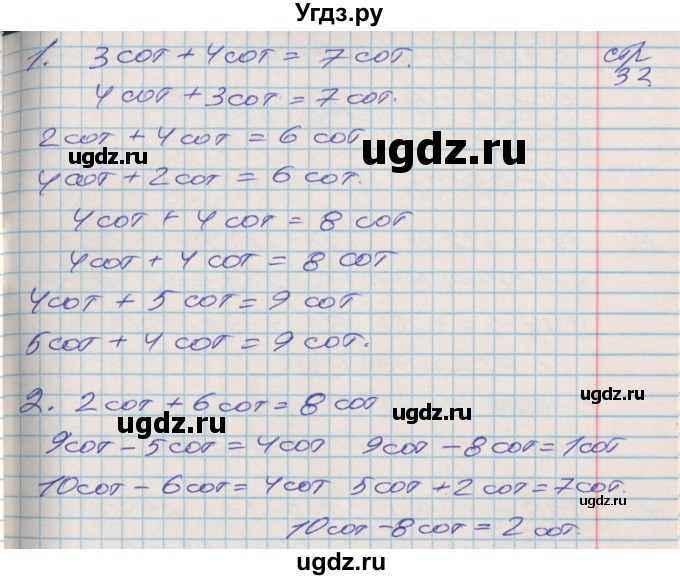 Угдз.ру
1. 3 сот + 4 сот = 7 сот.
стр 32
4 сот + 3 сот = 7 сот.
2 сот + 4 сот = 6 сот
ugdz.ru
ugdz.ru
4 сот + 2 сот = 6 сот.
4 сот + 4 сот = 8 сот
ugdz.ru
4 сот + 4 сот = 8 сот
4 сот + 5 сот = 9 сот
5 сот + 4 сот = 9 сот.
ugdz.ru
2. 2 сот + 6 сот = 8 сот
ugdz.ru
ugdz.ru
9 сот - 5 сот = 4 сот 9 сот - 8 сот = 1 сот
10 сот - 6 сот = 4 сот 5 сот + 2 сот = 7 сот.
ugdz.ru
10 сот - 8 сот = 2 сот.
ugdz.ru